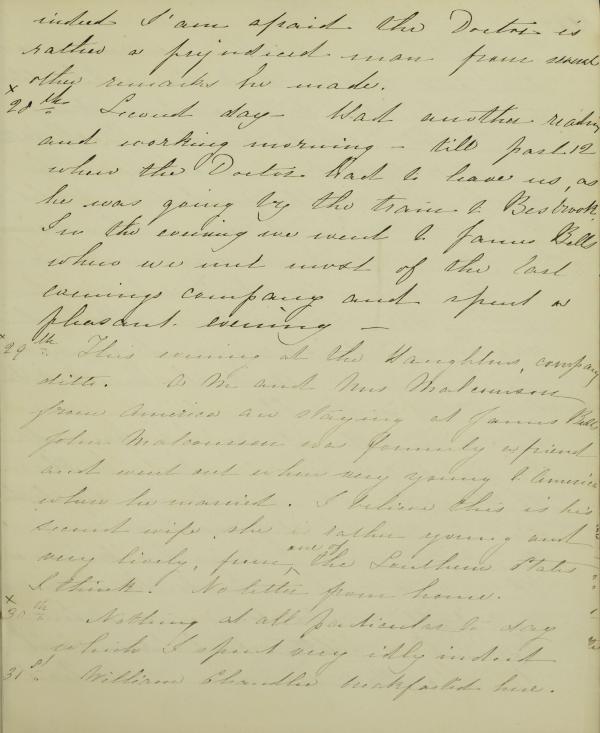 indeed I am afraid the Doctor is
rather a prejudiced man from several
other remarks he made.
x 28th Second day - Had another reading
and working morning - till past 12
when the Doctor had to leave us, as
he was going by the train to Besbrook.
In the evening we went to James Bells
where we met most of the last
evenings company and spent a
pleasant evening -
x 29th This evening at the Haughtons, company
ditto. A Mr and Mrs Malcomson
from America are staying at James Bells
John Malcomson was formerly a friend
and went out when very young to America
where he married. I believe this is his
second wife, she is rather young and
very lively, from one of the Southern States
I think. No letter from home.
x 30th Nothing at all particular to day
which I spent very idly indeed
31st William Chandlee breakfasted here.